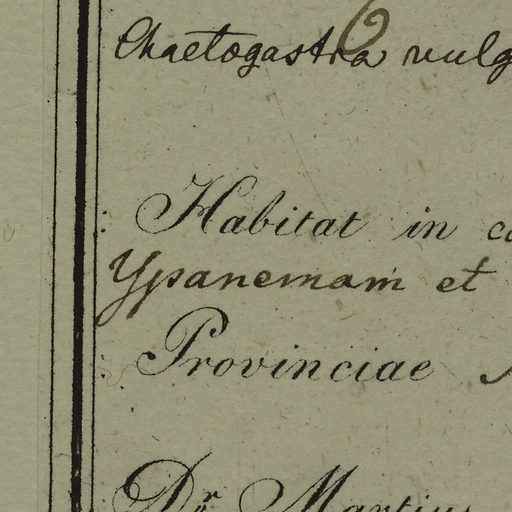 6
Chaetogastra vulg
Habitat in
Ypanemam et
Provinciae
Dr. Martius